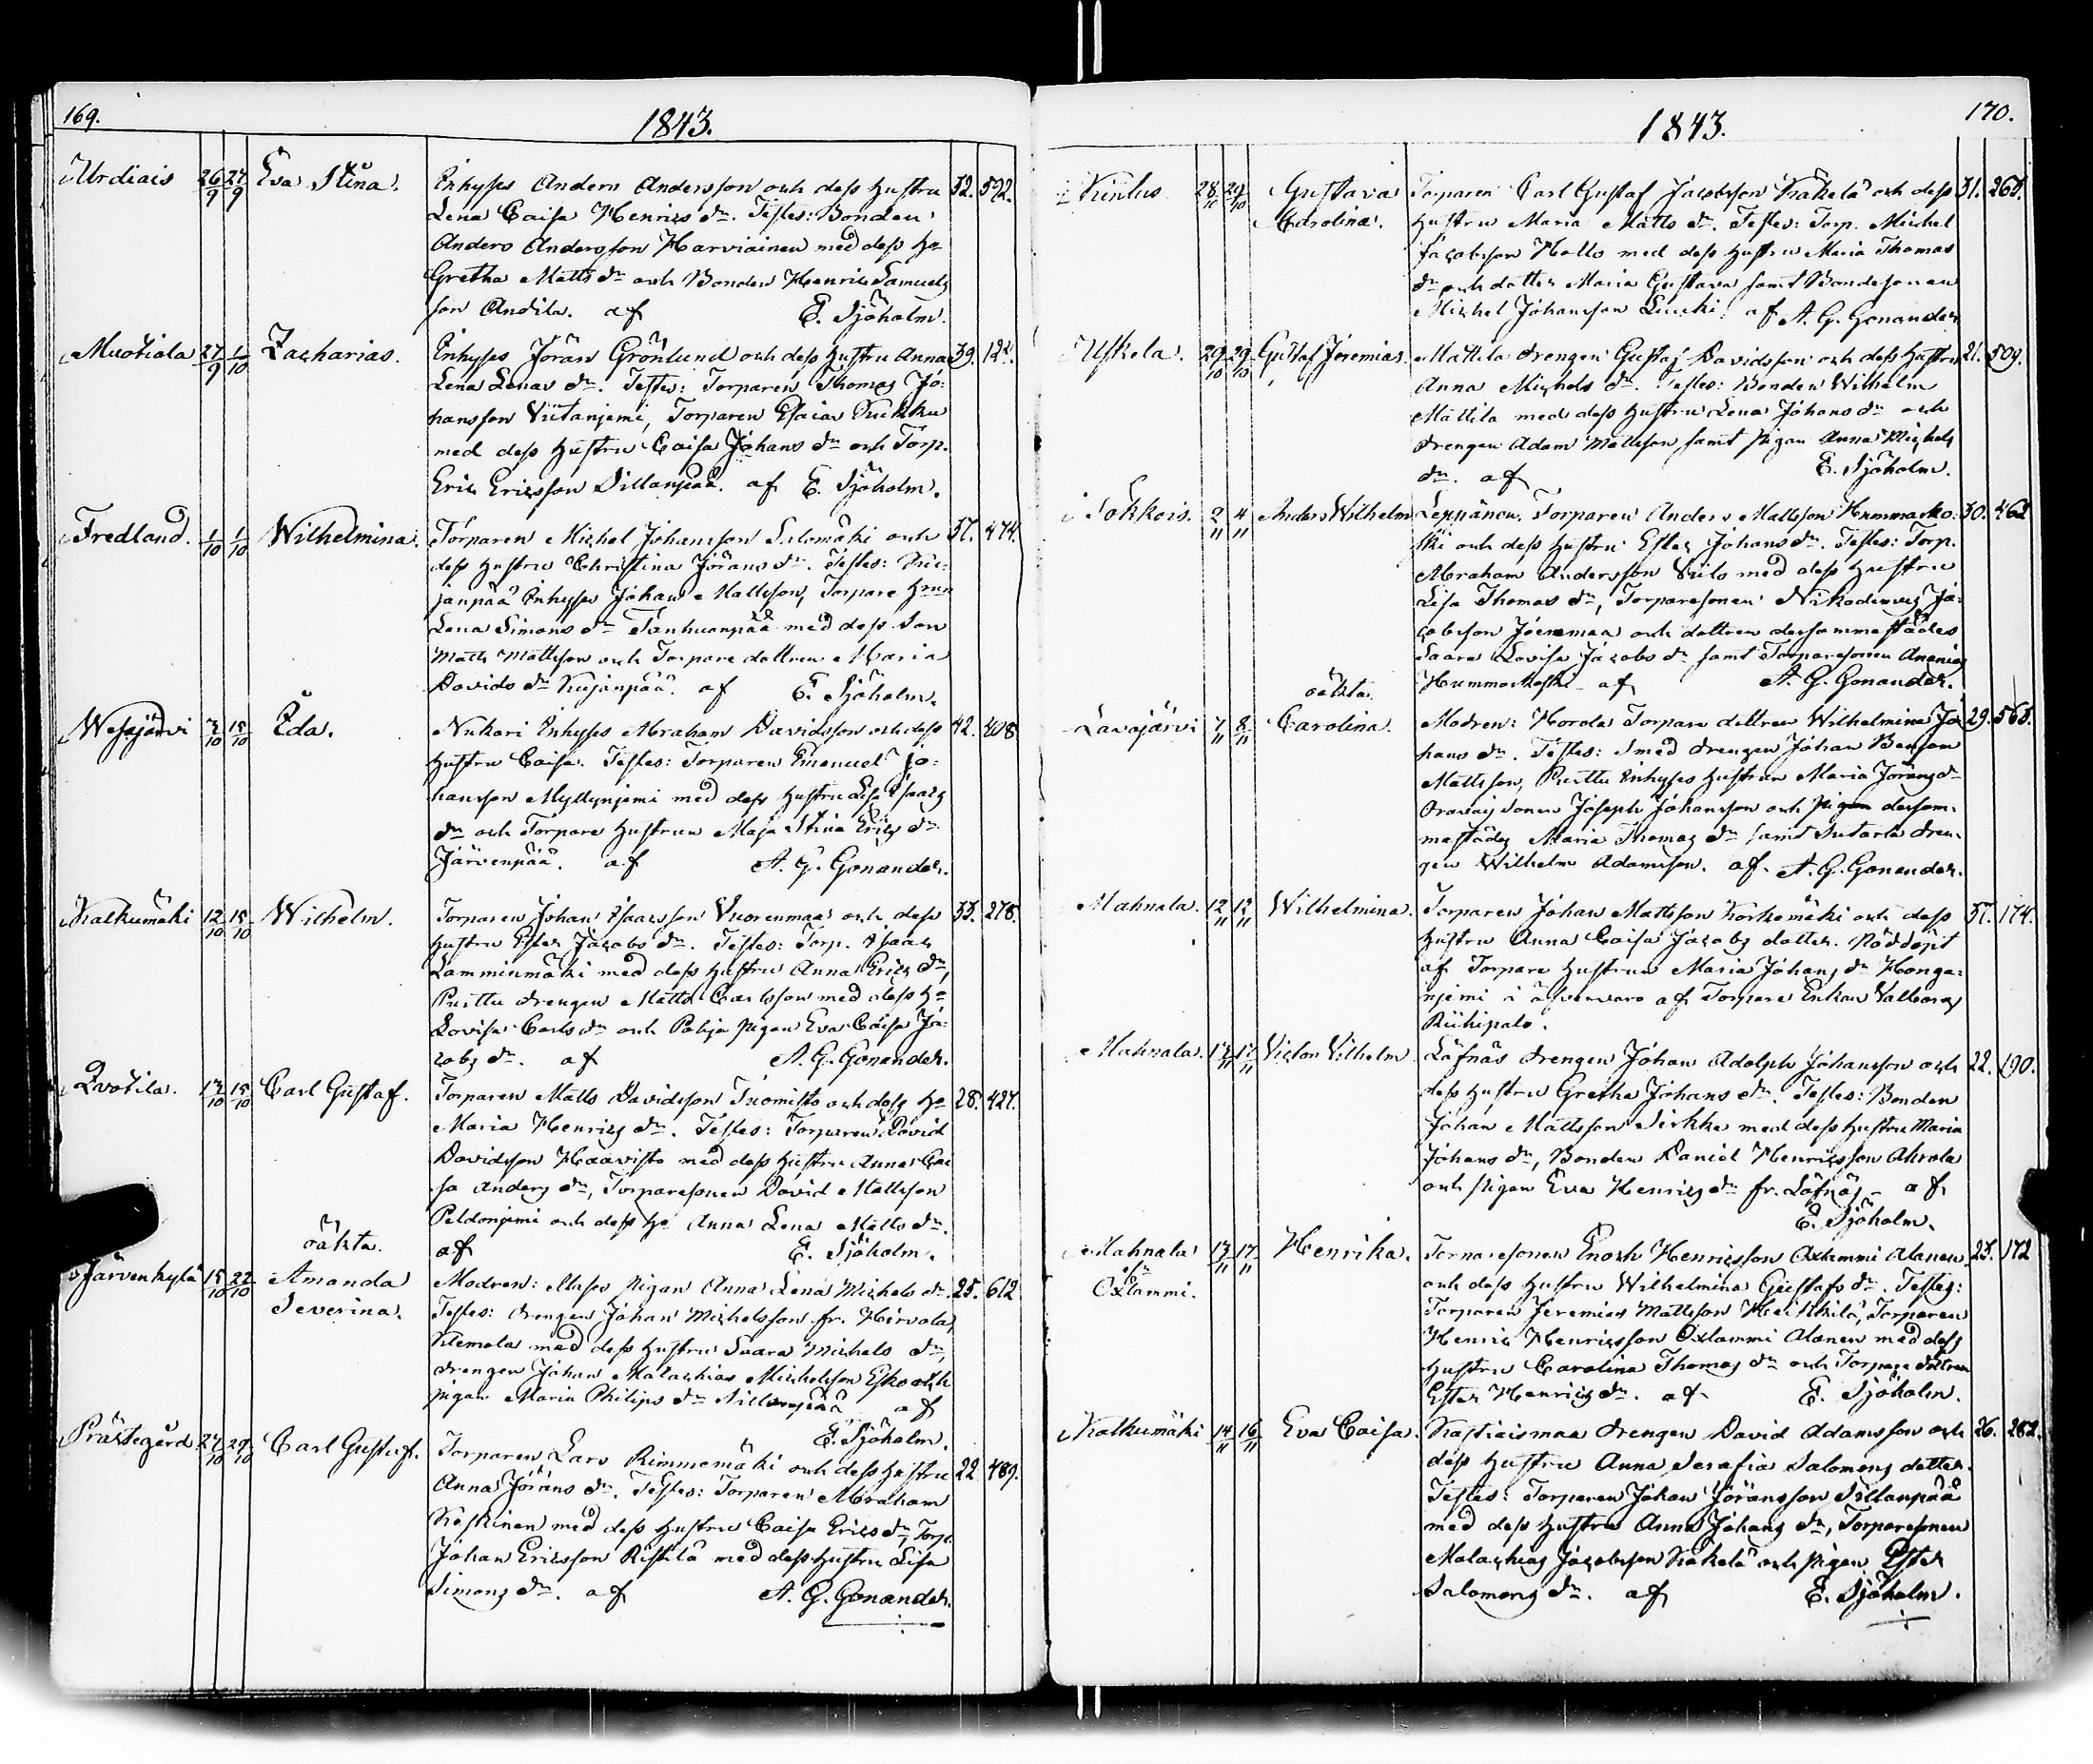 169.
1843.
Urdiais 26/9 27/9 Eva Stina. Inhyses Anders Andersson och dess hustru 32. 592.
Lena Caisa Henrics dr. Testes: Bonden
Anders Andersson Harviainen med dess ha
Gretha Matts dr och Bonden Henric Samuels
son Andila. af E. Sjöholm.
Muotiala 27/9 1/10 Zacharias. Inhyses Jöran Grönlund och dess hustru Anna 39. 124.
Lena Lenas dr. Testes: Torparen Thomas Jo-
hansson Viitanjemi, Torparen Esaias Kukku
med dess hustru Caisa Johans dr och Torp.
Eric Ericsson Sillanpää. af E. Sjöholm.
Fredland. 1/10 1/10 Wilhelmina. Torparen Michel Johansson Salomäki och 37. 474.
dess hustru Christina Jörans dr. Testes: Ku-
janpää Inhyses Johan Mattsson, Torpare hrun
Lena Simons dr Tanhuanpää med dess son
Matts Mattsson och Torpare dottren Maria
Davids dr Kujanpää. af E. Sjöholm.
Wesajärvi 3/10 15/10 Eda. Nukari Inhyses Abraham Davidsson och dess 42. 408
hustru Caisa. Testes: Torparen Emanuel Jo-
hansson Myllynjemi med dess hustru Lisa Isaacs
dr och Torpare hustrun Maja Stina Erics dr
Järvenpää. af A. G. Gonander.
Kalkumäki 12/10 15/10 Wilhelm. Torparen Johan Isaacsson Vuorenmaa och dess 33. 276.
hustru Ester Jacobs dr. Testes: Torp. Isaac
Lamminmäki med dess hustru Anna Erics dr,
Purttu drengen Matts Carlsson med dess ha
Lovisa Carls dr och Pohja pigan Eva Caisa Ja-
cobs dr. af A. G. Gonander.
Qvotila. 13/10 15/10 Carl Gustaf. Torparen Matts Davidsson Tuomisto och dess ha 28. 427.
Maria Henrics dr. Testes: Torparen David
Davidsson Haavisto med dess hustru Anna Cai
sa Anders dr, Torparesonen David Mattsson
Peldonjemi och dess ha Anna Lena Matts dr.
af E. Sjöholm.
oäkta.
Järvenkylä 15/10 22/10 Amanda Modren: pigan Anna Lena Michels dr. 25. 612
Severina. Testes: drengen Johan Michelsson fr. Hirvola,
Klemola med dess hustru Saara Michels dr,
drengen Johan Malachias Michelsson Esko och
pigan Maria Philips dr Sillanpää af
E. Sjöholm.
Prästegård 27/10 29/10 Carl Gustaf. Torparen Lars Rimmemäki och dess hustru 22. 489.
Anna Jörans dr. Testes: Torparen Abraham
Koskinen med dess hustru Caisa Erics dr, Torp.
Johan Ericsson Ristilä med dess hustru Lisa
Simons dr. af A. G. Gonander.
170.
1843.
Kiulus 28/10 29/10 Gustava Torparen Carl Gustaf Jacobsson Kakelä och dess 31. 268.
Carolina. hustru Maria Matts dr. Testes: Torp. Michel
Jacobsson Hallo med dess hustru Maria Thomas
dr och dotter Maria Gustava samt Bondesonen
Michel Johansson Liucki. af A. G. Gonander
Uskela. 29/10 29/10 Gustaf Jeremias. Mattila drengen Gustaf Davidsson och dess hustru 21. 509.
Anna Michels dr. Testes: Bonden Wilhelm
Mattila med dess hustru Lena Johans dr och
drengen Adam Mattsson samt pigan Anna Michels
dr. af E. Sjöholm.
Sohkois. 2/11 4/11 Anders Wilhelm Leppänen. Torparen Anders Mattsson Hummarko- 30. 462
ski och dess hustru Ester Johans dr. Testes: Torp.
Abraham Andersson Viilo med dess hustru
Lisa Thomas dr, Torparesonen Nikodemus Ja-
cobsson Joenmaa och dottren dersammastädes
Saara Lovisa Jacobs dr samt Torparesonen Ananias
Hummarkoski af A. G. Gonander.
oäkta.
Lavajärvi 7/11 8/11 Carolina. Modren: Horola Torpare dottren Wilhelmina Jo 29. 568.
hans dr. Testes: Smed drengen Johan
Mattsson, Purttu Inhyses hustrun Maria Jörans dr
sonen Joseph Johansson och pigan dersam-
mastädes Maria Thomas dr samt Sutarla dren-
gen Wilhelm Adamsson. af A. G. Gonander.
Mahnala. 12/11 12/11 Wilhelmina. Torparen Johan Mattsson Korkemäki och dess 37. 174.
hustru Anna Caisa Jacobs dotter. Nöddöpt
af Torpare hustrun Maria Johans dr Honga-
njemi i öfvervaro af Torpare Enkan Valborg
Riihipalo.
Mahnala. 13/11 17/11 Victor Vilhelm Löfnäs drengen Johan Adolph Johansson och 22. 190.
dess hustru Gretha Johans dr. Testes: Bonden
Johan Mattsson Sirkka med dess hustru Maria
Johans dr, Bonden Daniel Henricsson Ahrola
och pigan Eva Henrics dr fr. Löfnäs af
E. Sjöholm.
Mahnala 13/11 17/11 Henrika. Torparesonen Enoch Henricsson Oxlammi Alanen 23. 172
Oxlammi. och dess hustru Wilhelmina Gustafs dr. Testes:
Torparen Jeremias Mattsson Heickilä, Torparen
Henric Henricsson Oxlammi Alanen med dess
hustru Carolina Thomas dr och Torpare dottren
Ester Henrics dr. af E. Sjöholm.
Kalkumäki 14/11 16/11 Eva Caisa. Kastiaismaa drengen David Adamsson och 26. 282.
dess hustru Anna Serafia Salomons dotter.
Testes: Torparen Johan Jöransson Sillanpää
med dess hustru Anna Johans dr, Torparesonen
Malachias Jacobsson Kakelä och pigan Ester
Salomons dr. af E. Sjöholm.